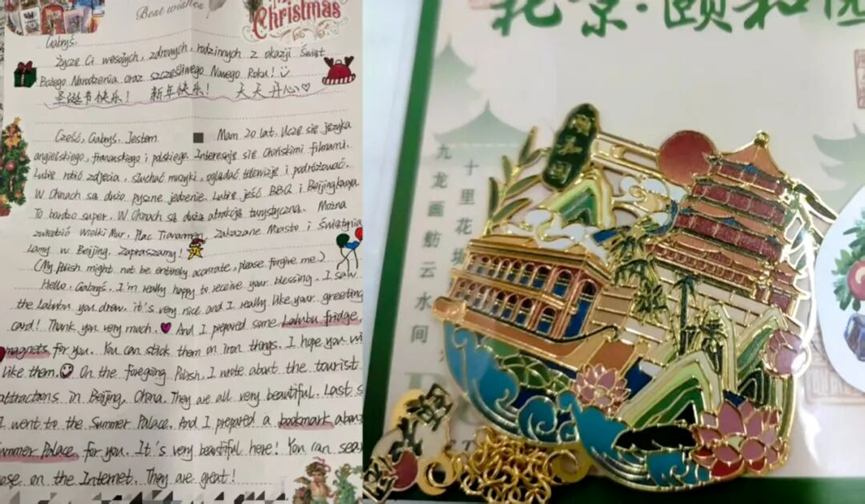 Best wishes
Christmas
Gabyś.
Życzę Ci wesołych, zdrowych, rodzinnych z okazji Świąt
Bożego Narodzenia oraz szczęśliwego Nowego Roku!
圣诞节快乐! 新年快乐! 天天开心♡
Cześć, Gabyś. Jestem Mam 20 lat. Uczę się języka
angielskiego, francuskiego i polskiego. Interesuję się Chińskimi filmami.
Lubię robić zdjęcia, słuchać muzyki, oglądać telewizję i podróżować.
W Chinach są dużo pyszne jedzenie. Lubię jeść BBQ i Beijingkaoya.
To bardzo super. W Chinach są duża atrakcja turystyczna. Można
Wielki Mur, Plac Zakazane Miasto i Świątynia
Lamy w Beijing. Zapraszamy!
(My Polish might not be entirely accurate, please forgive me.)
Hello, Gabyś. I'm really happy to receive your blessing. I saw
the Labubu you drew. it's very nice and I really like your greeting
card! Thank you very much. And I prepared some Labubu fridge
magnets for you. You can stick them on iron things. I hope you wi
like them. On the foregoing Polish, I wrote about the tourist
attractions in Beijing, China. They are all very beautiful. Last
I went to the Summer Palace. And I prepared a bookmark about
Summer Palace for you. It's very beautiful here! You can sear
on the Internet. They are great!
北京·颐和园
十里花
九龙画舫云水间
颐和园